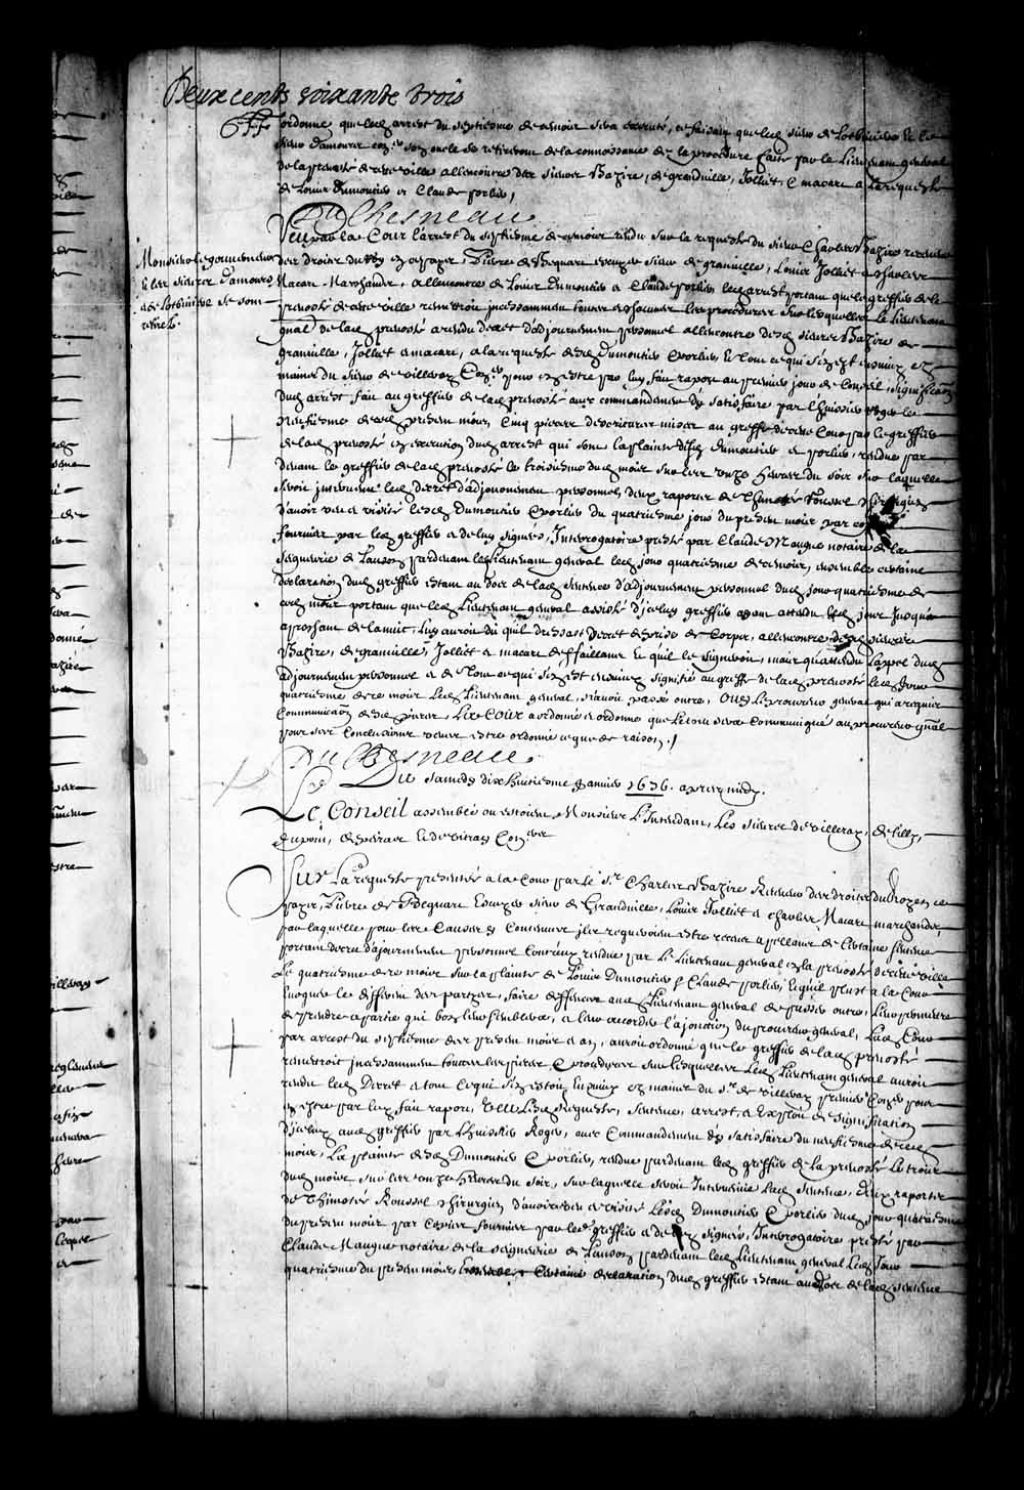 Deux cents soixante trois
ordonne que led arrest du septiesme de ce mois sera executé, ce faisant que led sieur de Lotbiniere et le
sieur Damours con.er son oncle se retireront de la connoissance de la procedure faite par le Lieutenant general
de la prevosté de cette ville allencontre des sieurs Bazire, de grandville, Jolliet et macart a la requeste
de Louis Dumontier et Claude Porlier,
Du Chesneau
Veu par la Cour l'arrest du septiesme de ce mois rendu sur la requeste du sieur Charles Bazire receveur
Monsieur le gouverneur
des droits du Roy en ce pays, Pierre de Becquart escuyer sieur de granville, Louis Jolliet et Charles
et les sieurs Damours
Macart Marchands, allencontre de Louis Dumontier et Claude Porlier, led arrest portant que le greffier de la
et de Lotbiniere se sont
prevosté de cette ville remettroit incessamment toutes les procedures sur lesquelles le Lieutenant
retirés.
gnal de lad prevosté a rendu decret d'adjournement personnel allencontre desd sieurs Bazire de
granville, Jolliet et macart, a la requeste desd Dumontier et Porlier, et tout ce qui s'en est ensuivy es
mains du sieur de Villeray Con.er pour en estre par luy fait raport au premier jour de Conseil, signification
dud arrest fait au greffier de lad prevosté avec commandement dy satisfaire par l'huissier Roger le
neufiesme de ced present mois, Cinq pieces descritures mises au greffe de cette Cour par le greffier
de lad prevosté en execution dud arrest qui sont la plainte desd Dumontier et porlier, rendue par
devant le greffier de lad prevosté le troisiesme dud mois sur les unze heures du soir sur laquelle
seroit intervenu led decret d'adjournement personnel, deux raports de Thimotée Roussel chirurgien
d'avoir veu et visité lesd Dumontier et Porlier du quatriesme jour du present mois par
fournier par led greffier et de luy signez, Interrogatoire presté par Claude Maugue notaire de la
seigneurie de Lauson pardevant led Lieutenant general led jour quatriesme de ce mois, ensemble certaine
declaration dud greffier estant au dos de lad sentence d'adjournement personnel dud jour quatriesme de
ced mois portant que led Lieutenant general assisté d'iceluy greffier ayant attendu led jour jusqu'a
aprochant de la nuit, luy auroit dit qu'il dressast decret de prise de Corps, allencontre desd sieurs
Bazire, de granville, Jolliet et macart deffaillans et qu'il le signeroit, mais qu'attendu l'apel dud
adjournement personnel et de tout ce qui s'en est ensuivy signifié au greffe de lad prevosté led jour
quatriesme de ce mois led Lieutenant general, n'auroit passé outre, Ouy le procureur general qui a requis
Communicaon desd pieces, La Cour a ordonné et ordonne que le tout sera Communiqué au procureur gnal
pour ses Conclusions veues estre ordonné ce que de raison./
Du Chesneau
Du samedy dix huitiesme Janvier 1676. apres midy.
Le Conseil assemblé ou estoient Monsieur L'Intendant, Les sieurs de Villeray, de Tilly,
Dupont, de Peiras et de Vitray Con.ers
Sur La requeste presentée a la Cour par le S.r Charles Bazire Receveur des droits du Roy en ce
pays, Pierre de Becquart Escuyer sieur de Grandville, Louis Jolliet et Charles Macart marchands,
par laquelle pour les Causes y Contenues ils requeroient estre receus apellans de Certaine sentence
portant decret d'ajournement personnel Contr'eux rendue par le Lieutenant general en la prevosté de cette ville
Le quatriesme de ce mois sur la plainte de Louis Dumontier et Claude Porlier, et qu'il plust a la Cour
Evoquer le different des parties, faire deffences aud Lieutenant general de passer outre, Leur permettre
de prendre a partie qui bon leur semblera, et leur accorder l'ajonction du procureur general, Lad Cour
par arrest du septiesme des present mois et an, auroit ordonné que le greffier de lad prevosté
remettroit incessamment toutes les pieces et procedures sur lesquelles led Lieutenant general auroit
rendu led Decret et tout ce qui s'en estoit ensuivy es mains du S.r de Villeray premier Con.er pour
en estre par luy fait raport, Veu lad Requeste, sentence, arrest, et Exploit de signification
d'iceluy aud greffier par l'huissier Roger, avec Commandement d'y satisfaire du neufiesme de ced
mois, La plainte desd Dumontier et Porlier, rendue pardevant led greffier de la prevosté le trois
dud mois, sur les onze heures du soir, sur laquelle seroit Intervenue lad sentence, Deux raports
de Thimotée Roussel chirurgien d'avoir veu et visité lesd Dumontier et Porlier dud jour quatriesme
du present mois par Copies fournier par led greffier et de luy signés, Interrogatoire presté par
Claude Maugue notaire de la seigneurie de Lauson pardevant led Lieutenant general led Jour
quatriesme du present mois, Certaine declaration dud greffier estant au Dos de lad sentence